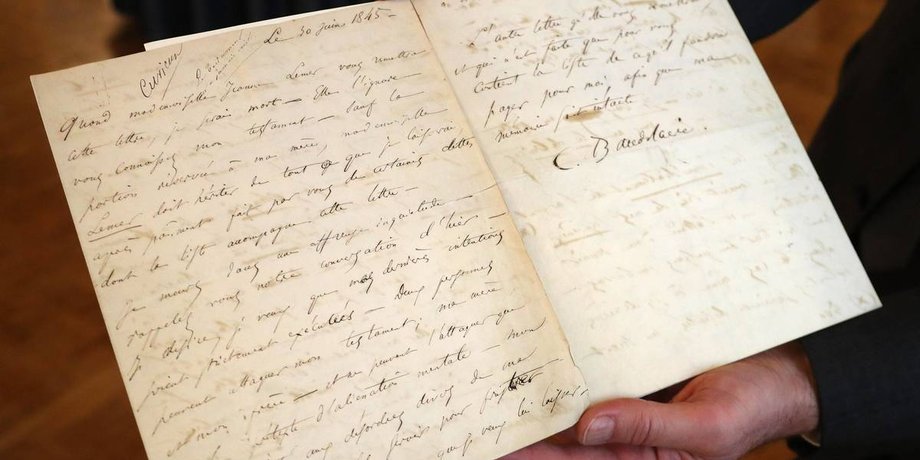 Le 30 juin 1845 –
Quand mademoiselle Jeanne Lemer vous remettra
cette lettre, je serai mort – Elle l'ignore
vous connaissez mon testament – Sauf la
portion réservée à ma mère, mademoiselle
Lemer doit hériter de tout ce que je laisserai
après paiement fait par vous de certaines dettes
dont la liste accompagne cette lettre –
Je meurs dans une affreuse inquiétude –
rappelez vous notre conversation d'hier –
Je désire, je veux que mes dernières intentions
soient strictement exécutées – Deux personnes
peuvent attaquer mon testament ; ma mère
et mon frère – et ne peuvent l'attaquer que
d'aliénation mentale – mon
désordres divers de ma
pour frustrer
que je veux lui laisser
L'autre lettre qu'elle vous remettra
et qui n'est faite que pour vous,
contient la liste de ce qu'il faudra
payer pour moi, afin que ma
mémoire soit intacte
C. Baudelaire.